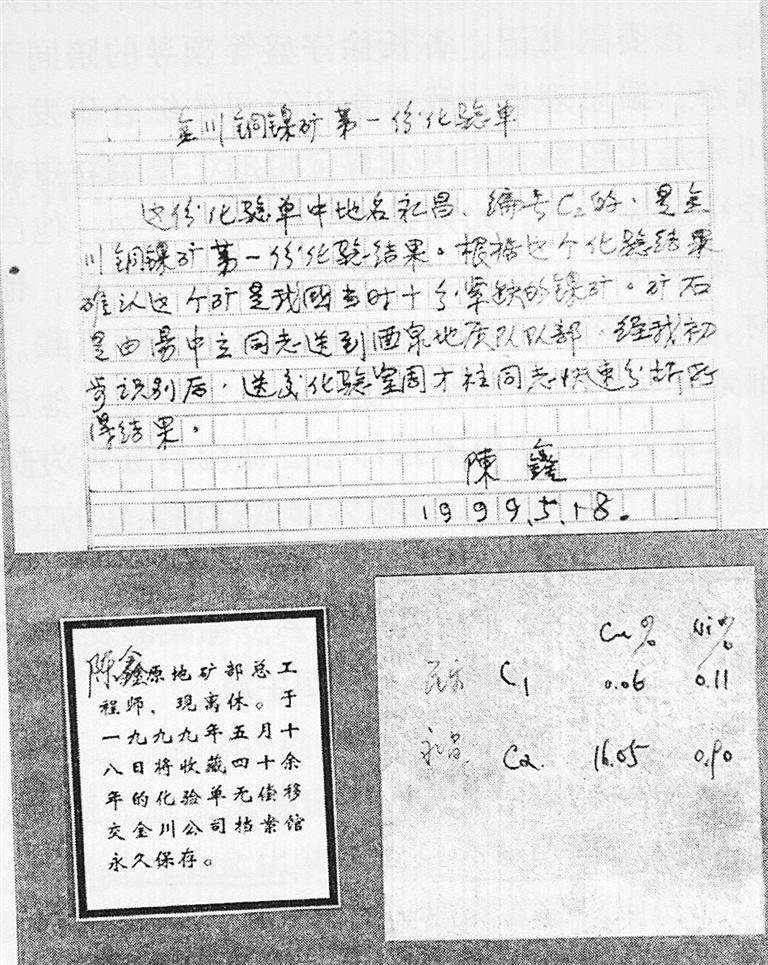 金川铜镍矿第一份化验单
这份化验单中地名永昌、编号C₂的,是金
川铜镍矿第一份化验结果。根据这个化验结果
确认这个矿是我國当时十分紧缺的镍矿。矿石
是由易中立同志送到酒泉地质队队部,经我初
步识别后,送交化验室周才柱同志快速分析所
得结果。
陳鑫
1999.5.18.
陈鑫原地矿部总工
程师,现离休。于
一九九九年五月十
八日将收藏四十余
年的化验单无偿移
交金川公司档案馆
永久保存。
Cu% Ni%
C1 0.06 0.11
永昌 C2 16.05 0.90